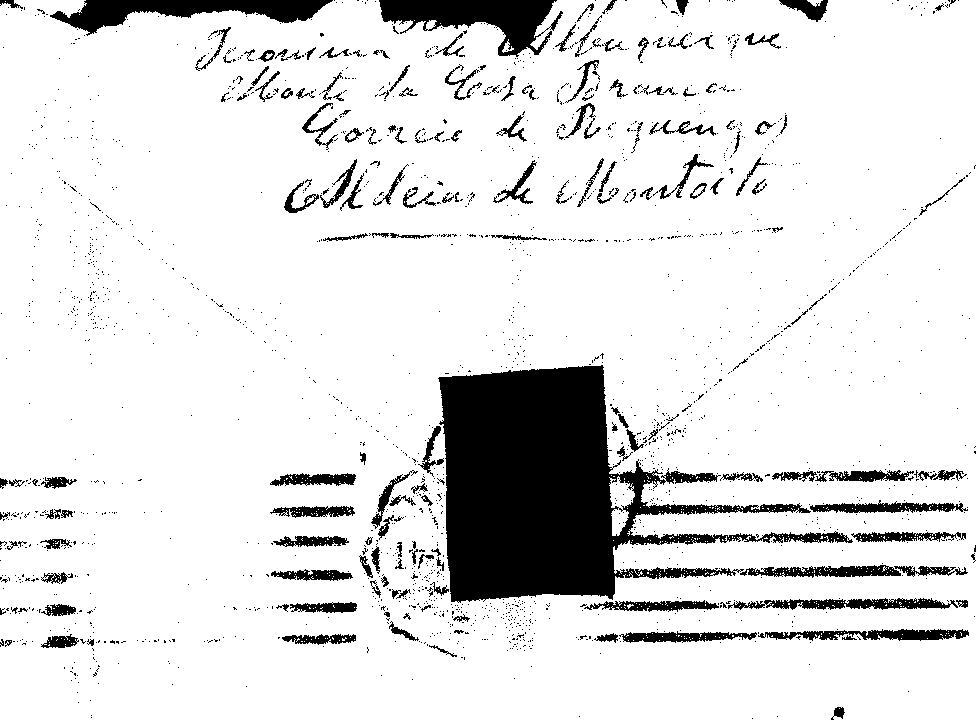 Jeronima de Albuquerque
Monte da Casa Branca
Correio de Reguengos
Aldeias de Montoito